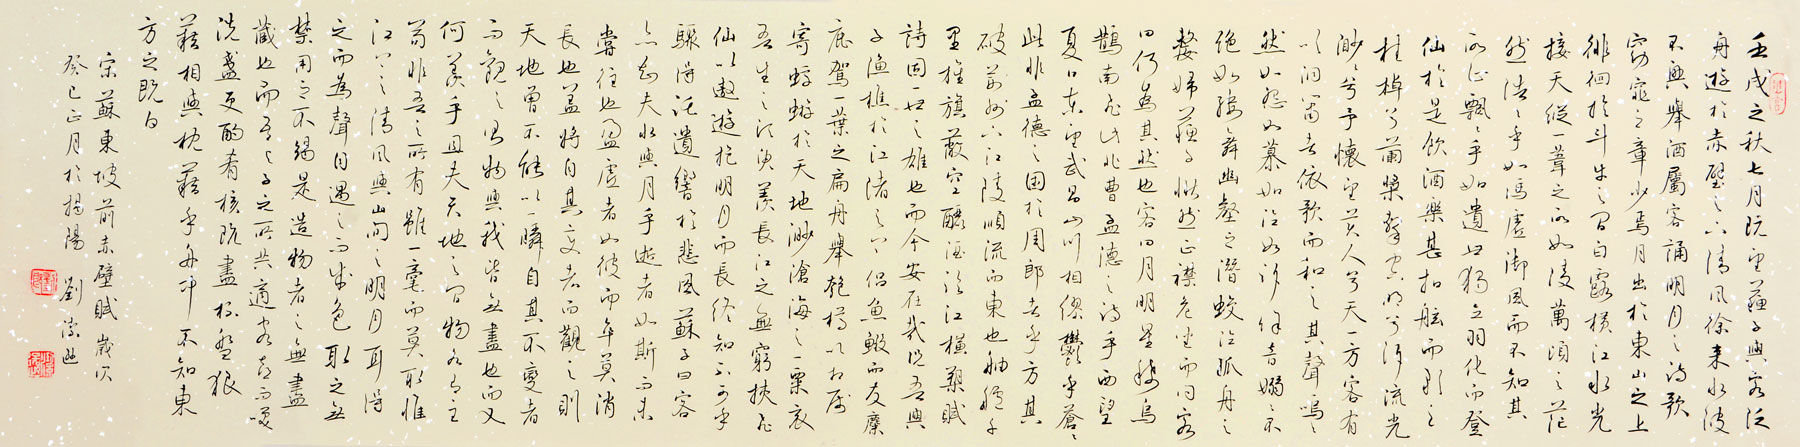 壬戌之秋七月既望蘇子與客泛
舟遊於赤壁之下清風徐來水波
不興舉酒屬客誦明月之詩歌
窈窕之章少焉月出於東山之上
徘徊於斗牛之間白露橫江水光
接天縱一葦之所如凌萬頃之茫
然浩浩乎如馮虛御風而不知其
所止飄飄乎如遺世獨立羽化而登
仙於是飲酒樂甚扣舷而歌之
桂棹兮蘭槳擊空明兮泝流光
渺兮予懷望美人兮天一方客有
吹洞簫者依歌而和之其聲嗚嗚
然如怨如慕如泣如訴餘音嫋嫋不
絕如縷舞幽壑之潛蛟泣孤舟之
嫠婦蘇子愀然正襟危坐而問客
曰何為其然也客曰月明星稀烏
鵲南飛此非曹孟德之詩乎西望
夏口東望武昌山川相繆鬱乎蒼蒼
此非孟德之困於周郎者乎方其
破荊州下江陵順流而東也舳艫千
里旌旗蔽空釃酒臨江橫槊賦
詩固一世之雄也而今安在哉況吾與
子漁樵於江渚之上侶魚蝦而友麋
鹿駕一葉之扁舟舉匏樽以相屬
寄蜉蝣於天地渺滄海之一粟哀
吾生之須臾羨長江之無窮挾飛
仙以遨遊抱明月而長終知不可乎
驟得託遺響於悲風蘇子曰客
亦知夫水與月乎逝者如斯而未
嘗往也盈虛者如彼而卒莫消
長也蓋將自其變者而觀之則
天地曾不能以一瞬自其不變者
而觀之則物與我皆無盡也而又
何羨乎且夫天地之間物各有主
苟非吾之所有雖一毫而莫取惟
江上之清風與山間之明月耳得
之而為聲目遇之而成色取之無
禁用之不竭是造物者之無盡
藏也而吾與子之所共適客喜而笑
洗盞更酌肴核既盡杯盤狼
藉相與枕藉乎舟中不知東
方之既白
宋蘇東坡前赤壁賦歲次
癸巳正月於揭陽 劉